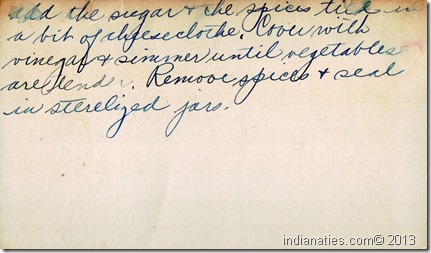 add the sugar & the spices tied in
a bit of cheeseclothe. Cover with
vinegar & simmer until vegetables
are tender. Remove spices & seal
in sterelized jars.
indianaties.com© 2013